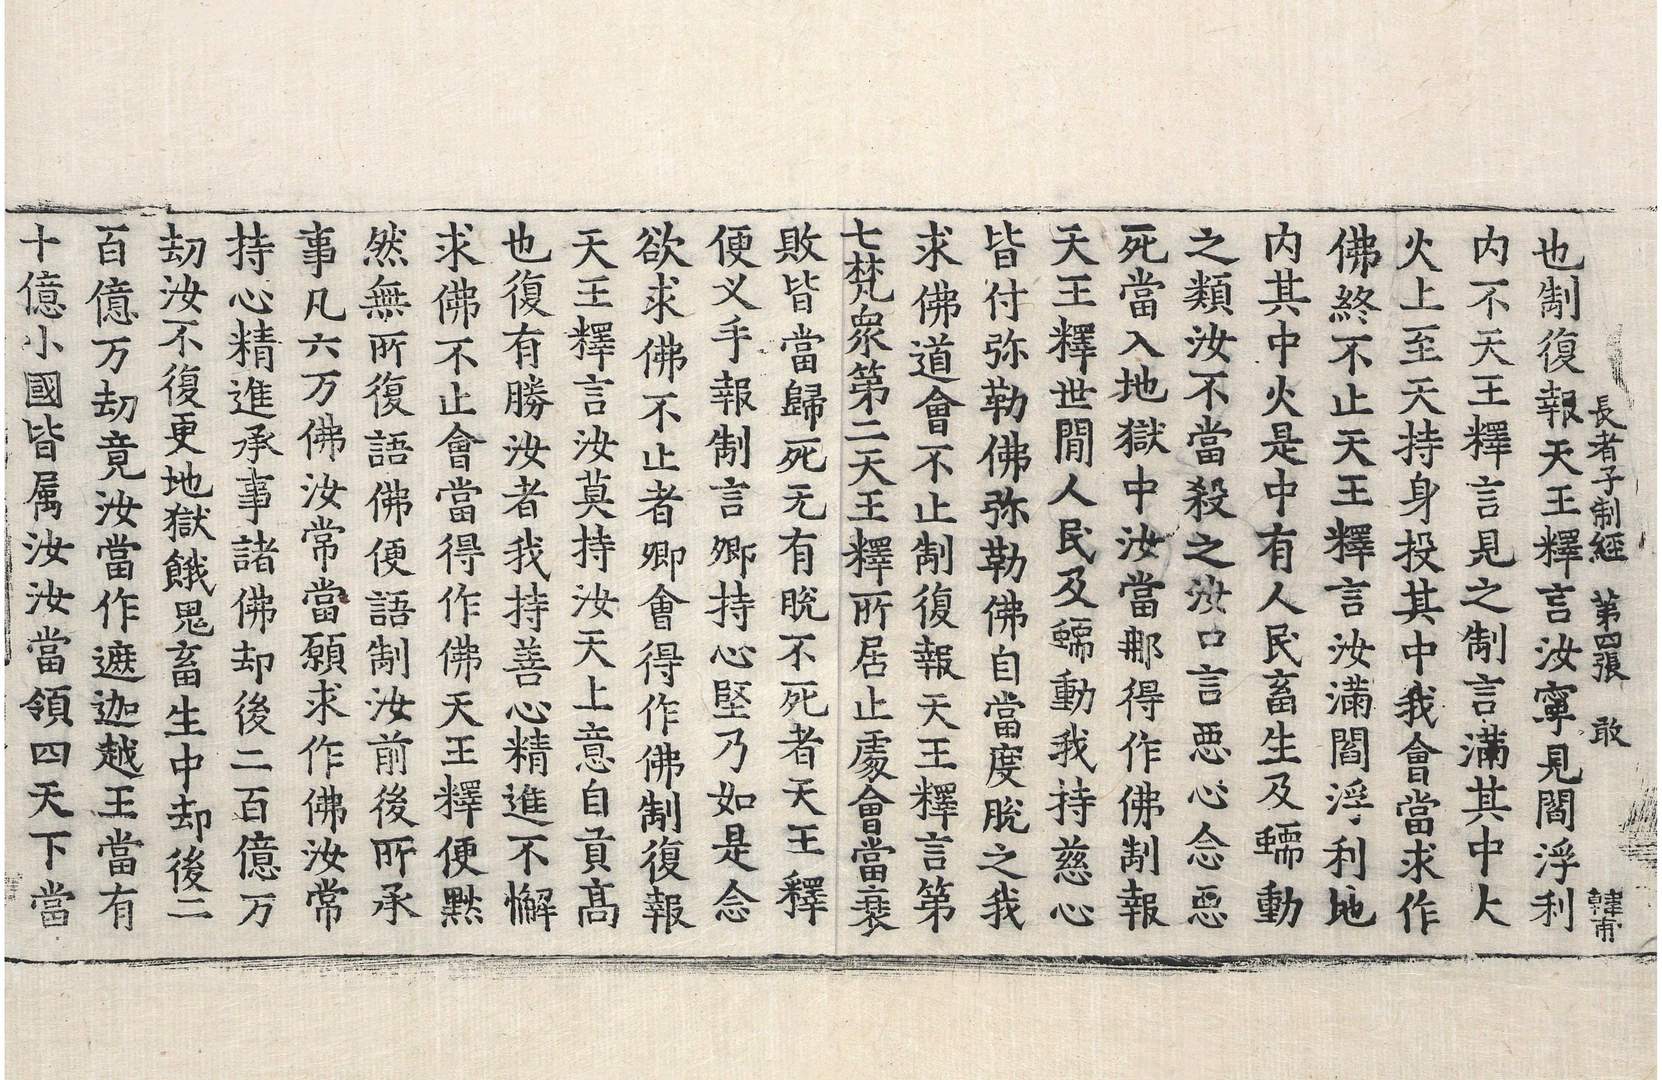 長者子制經 第四張 敢 韓甫
也制復報天王釋言汝寧見閻浮利
内不天王釋言見之制言滿其中大
火上至天持身投其中我會當求作
佛終不止天王釋言汝滿閻浮利地
内其中火是中有人民畜生及蠕動
之類汝不當殺之汝口言惡心念惡
死當入地獄中汝當那得作佛制報
天王釋世閒人民及蠕動我持慈心
皆付弥勒佛弥勒佛自當度脫之我
求佛道會不止制復報天王釋言第
七梵衆第二天王釋所居止處會當衰
敗皆當歸死无有脫不死者天王釋
便叉手報制言卿持心堅乃如是念
欲求佛不止者卿會得作佛制復報
天王釋言汝莫持汝天上意自貢高
也復有勝汝者我持善心精進不懈
求佛不止會當得作佛天王釋便黙
然無所復語佛便語制汝前後所承
事凡六万佛汝常當願求作佛汝常
持心精進承事諸佛却後二百億万
劫汝不復更地獄餓鬼畜生中却後二
百億万劫竟汝當作遮迦越王當有
十億小國皆属汝汝當領四天下當